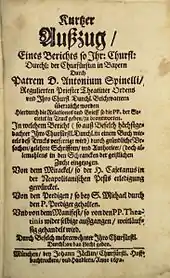 Kurtzer
Außzug /
Eines Berichts so Ihr: Churfürstl:
Durchl: der Churfürstin in Bayern
Durch
Patrem D. Antonium Spinelli,
Regulierten Priester Theatiner Ordens
und Ihro Churf. Durchl. Beichtvattern
überraicht worden
Hierdurch die Relationes und Brieff so die PP. der
in Truck geben / zu beantworten.
In welchem Bericht ( so auß Befelch höchstge-
dachter Ihro Churfürstl. Durchl. in einem Buch wie-
derholt deß Trucks verfertigt wird ) durch gründtliche Be-
weisen / gelehrte Schrifften / und Authores / doch al-
lemahlens in den Schrancken der geistlichen
Zucht eingezogen.
Von dem Miracul / so der H. Caietanus im
der Neapolitanischen Pest erledigung
gewürcket.
Von den Predigen / so bey S. Michael durch
den P. Prediger gehalten.
Und von dem Manifest / so von den PP. Thea-
tinis wider selbige außgangen / weitläuf-
fig gehandelt wird.
Durch Befelch mehrerwehnter Ihro Churfürstl.
Durchl. an das Liecht geben.
München / bey Johann Jäcklin / Churfürstl. Hoff-
buchtruckern / und Handlern / Anno 1672